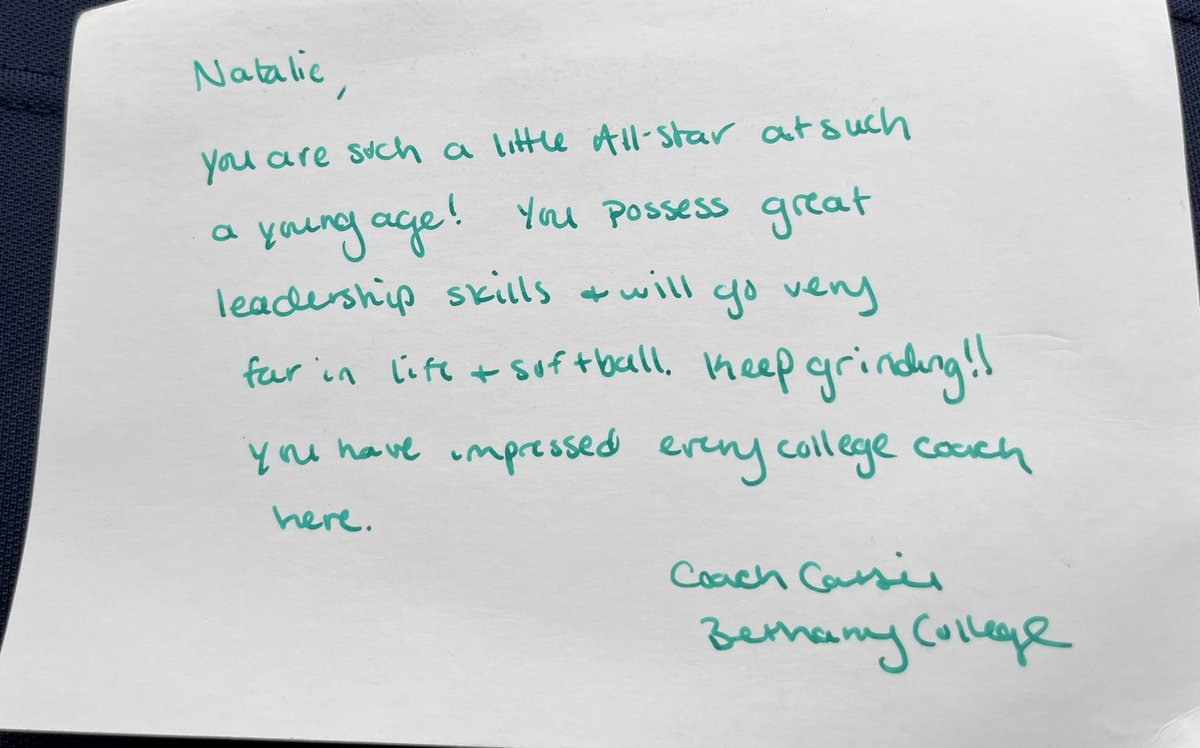 Natalie,
you are such a little All-Star at such
a young age! You possess great
leadership skills + will go very
far in life + softball. Keep grinding!!
You have impressed every college coach
here.
Coach Cassie
Bethany College